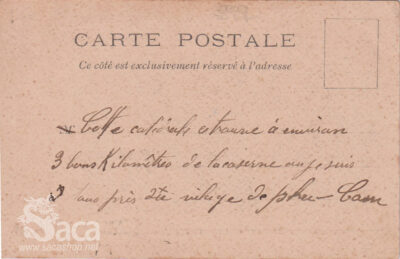 CARTE POSTALE
Ce côté est exclusivement réservé à l'adresse
Cette catédrale ce trouve à environ
3 bons Kilomètres de la caserne ou je suis
3 ans près village de phu Cam
Saca
www.sacashop.net